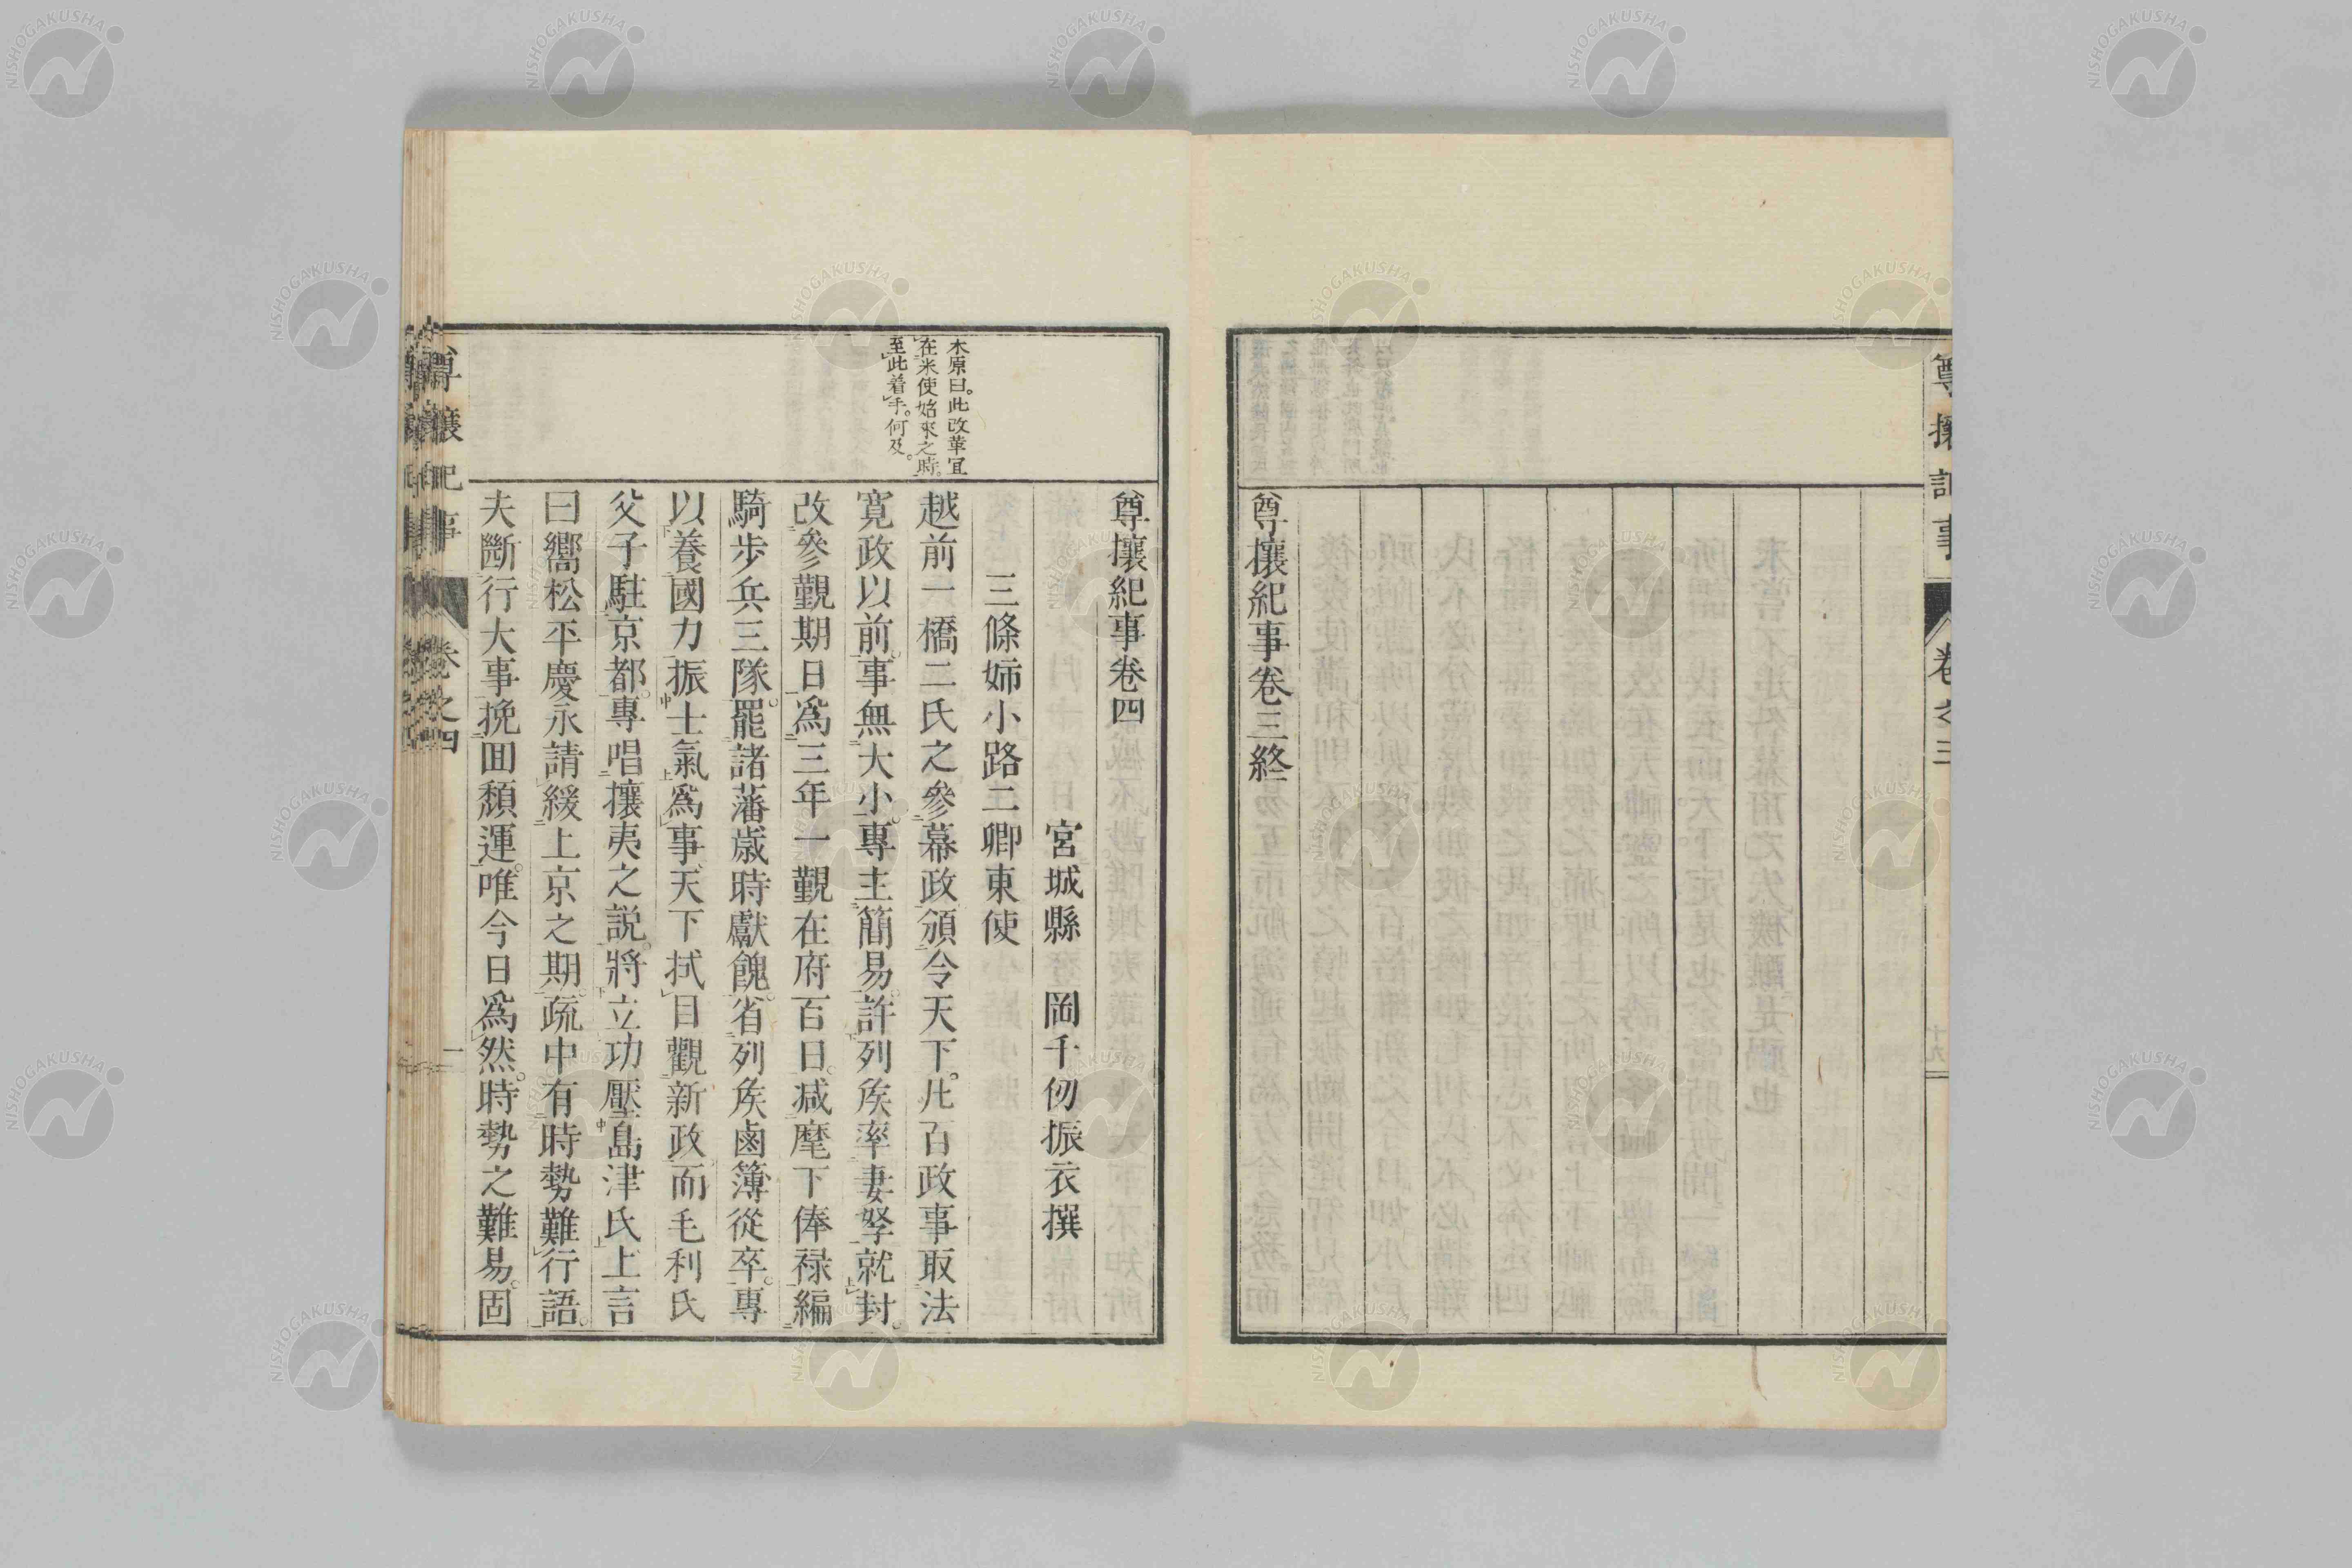 尊攘紀事
卷之三
十九
尊攘紀事卷三終
尊攘紀事卷四
宮城縣　岡千仞振衣撰
三條姉小路二卿東使
木原曰。此改革宜
在米使始來之時。
至此着手。何及。
越前一橋二氏之參幕政頒令天下。凡百政事取法
寛政以前。事無大小。專主簡易。許列矦率妻孥就封。
改參覲期日爲三年一覲在府百日。减麾下俸禄編
騎歩兵三隊。罷諸藩歳時獻餽。省列矦鹵簿從卒。專
以養國力振士氣爲事。天下拭目觀新政而毛利氏
父子駐京都。專唱攘夷之説。將立功壓島津氏上言
曰嚮松平慶永請緩上京之期。疏中有時勢難行語。
夫斷行大事挽囬頽運。唯今日爲然。時勢之難易。固
尊攘紀事
卷之四
一
NISHOGAKUSHA